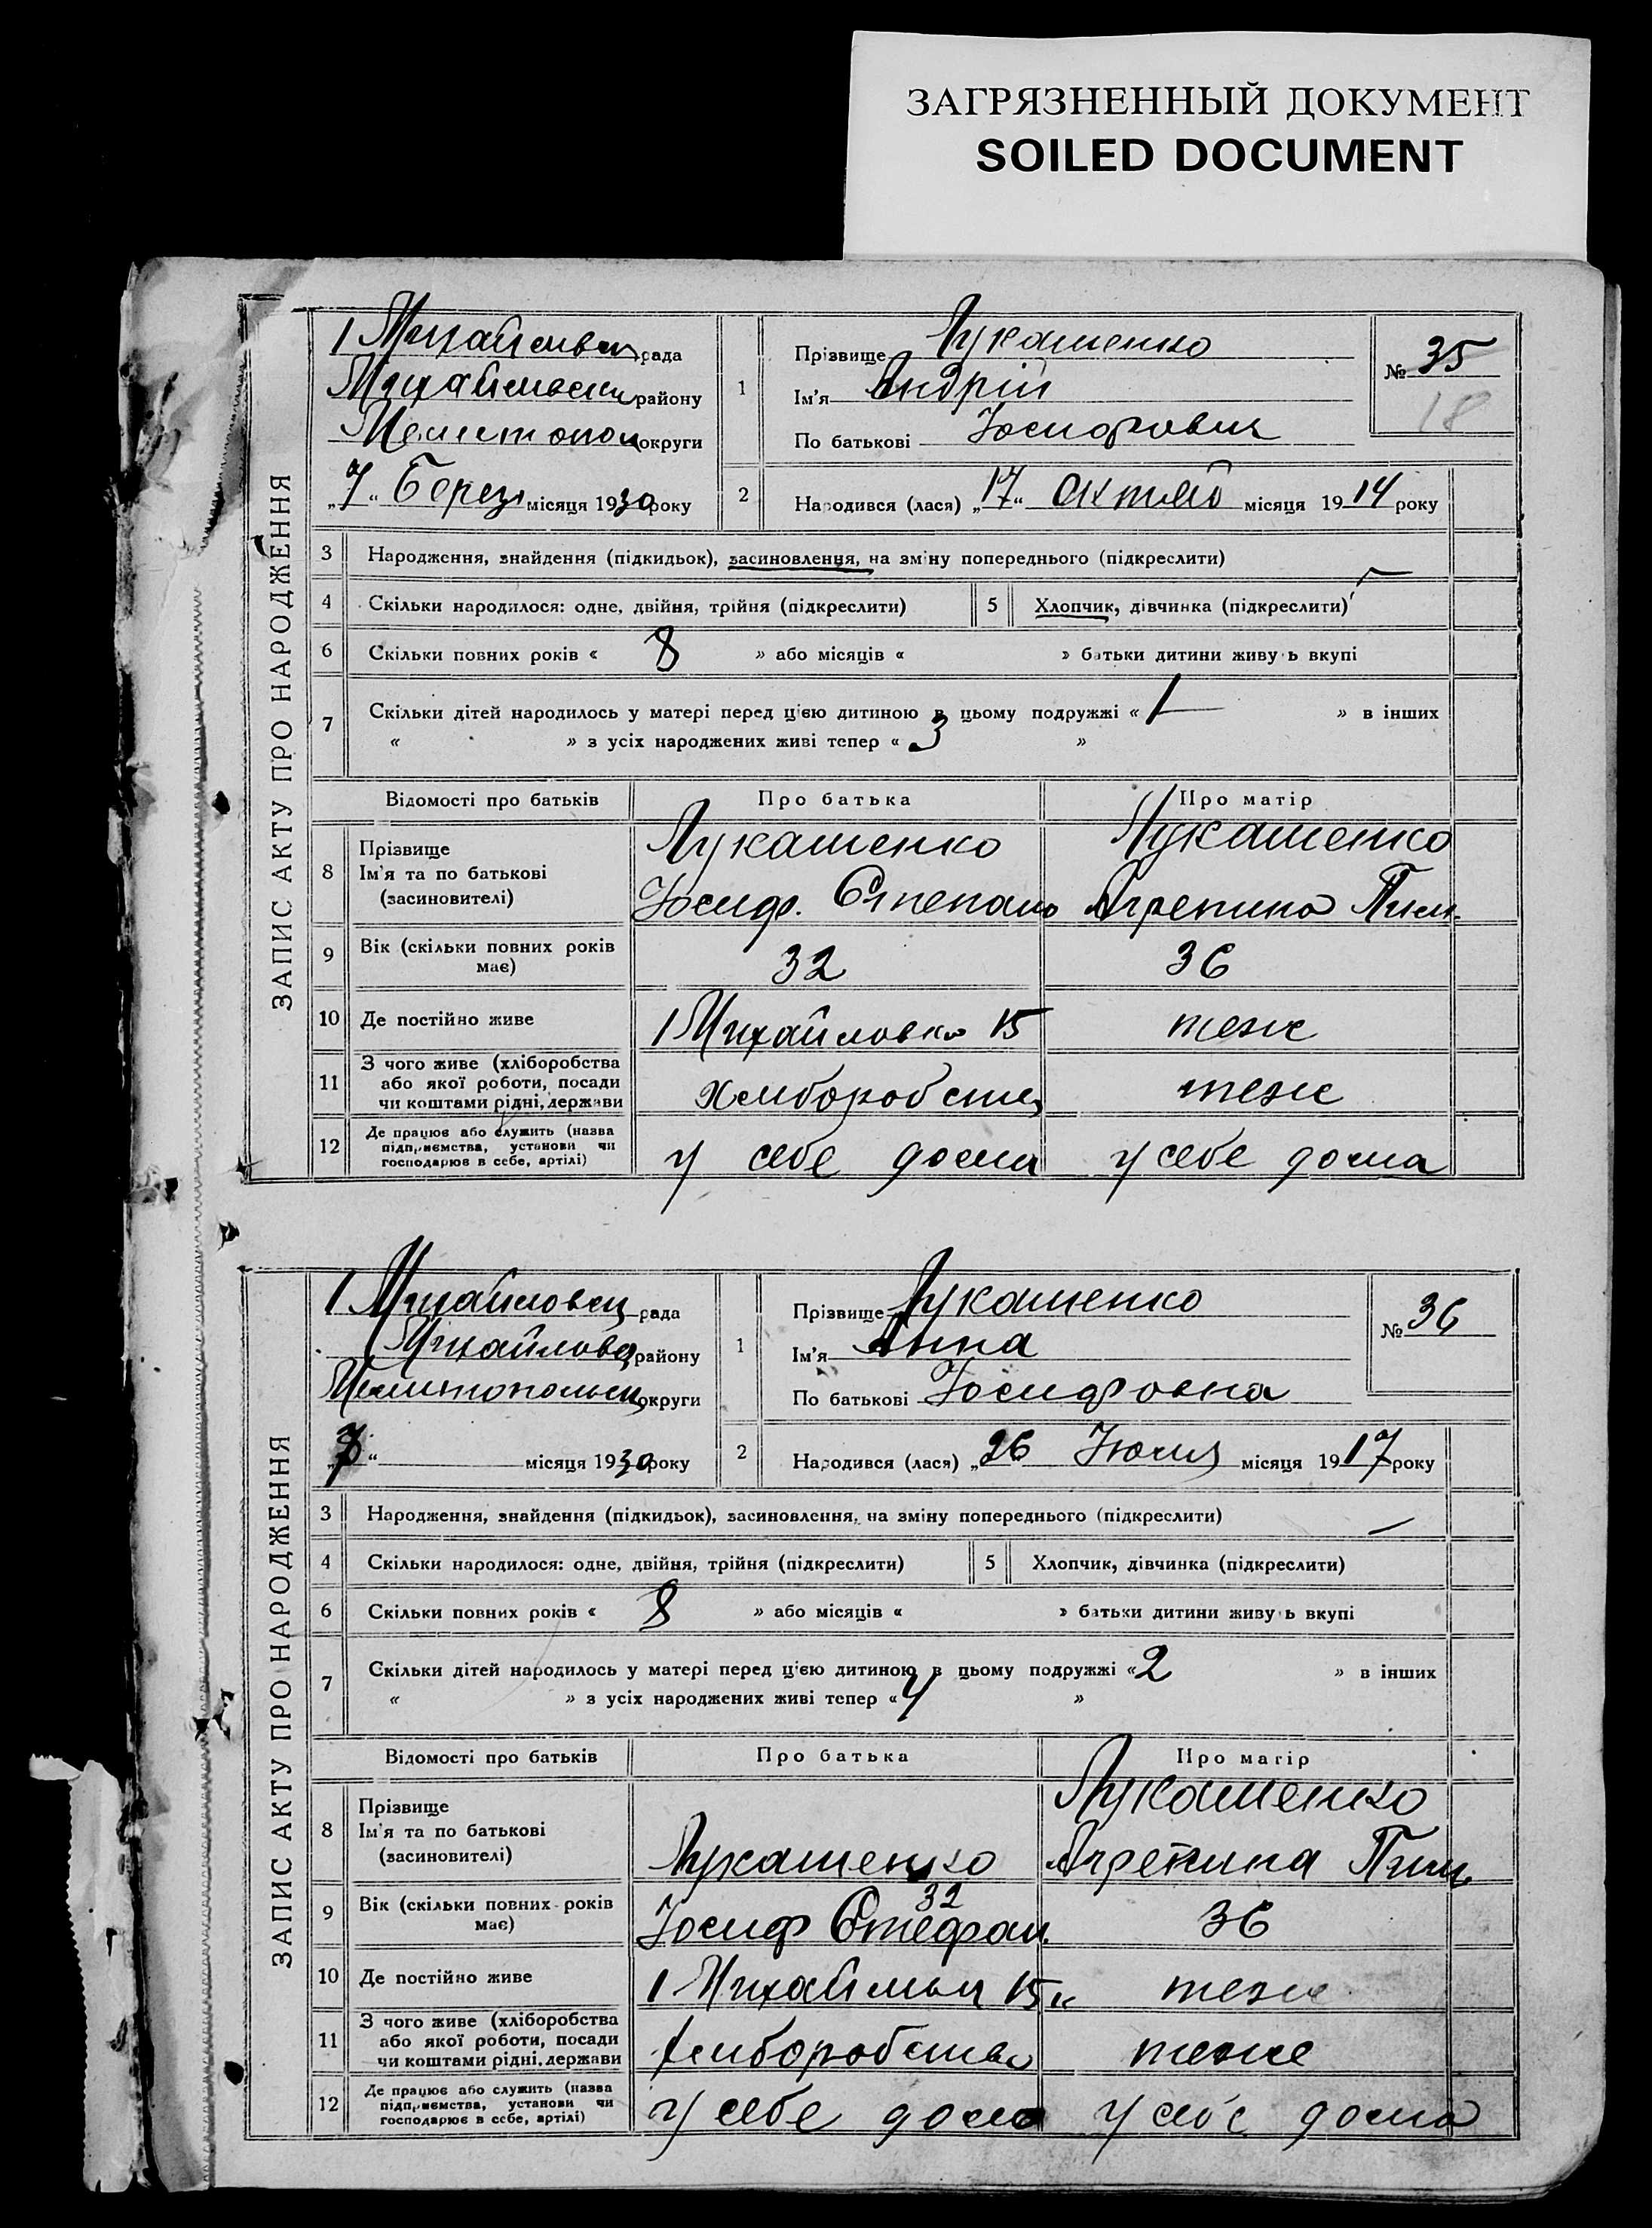 ЗАГРЯЗНЕННЫЙ ДОКУМЕНТ
SOILED DOCUMENT
ЗАПИС АКТУ ПРО НАРОДЖЕННЯ
рада
району
Мелитопол округи
„7“ Берез місяця 1930 року
1
Прізвище Лукашенко
Ім'я Андрій
По батькові Иосифович
№ 35
18
2
Народився (лася) „17“ Октяб місяця 1914 року
3 Народження, знайдення (підкидьок), засиновлення, на зміну попереднього (підкреслити)
4 Скільки народилося: одне, двійня, трійня (підкреслити)
5 Хлопчик, дівчинка (підкреслити)
6 Скільки повних років « 8 » або місяців « » батьки дитини живуть вкупі
7 Скільки дітей народилось у матері перед цією дитиною в цьому подружжі « 1 » в інших
« » з усіх народжених живі тепер « 3 »
Відомості про батьків Про батька Про матір
8 Прізвище Ім'я та по батькові (засновителі)
Лукашенко Лукашенко
Иосиф. Степано Агрепина Пим.
9 Вік (скільки повних років має) 32 36
10 Де постійно живе 1 Михайловка 15 теж
11 З чого живе (хліборобства або якої роботи, посади чи коштами рідні, держави Хлиборобств теж
12 Де працює або служить (назва підприємства, установи чи господарює в себе, артілі) у себе дома у себе дома
ЗАПИС АКТУ ПРО НАРОДЖЕННЯ
1 Михайловск рада
Михайловс району
Мелитопольск округи
„7“ місяця 1930 року
1
Прізвище Лукашенко
Ім'я Анна
По батькові Иосифовна
№ 36
2
Народився (лася) „26 Июля місяця 1917 року
3 Народження, знайдення (підкидьок), засиновлення, на зміну попереднього (підкреслити)
4 Скільки народилося: одне, двійня, трійня (підкреслити)
5 Хлопчик, дівчинка (підкреслити)
6 Скільки повних років « 8 » або місяців « » батьки дитини живуть вкупі
7 Скільки дітей народилось у матері перед цією дитиною в цьому подружжі « 2 » в інших
« » з усіх народжених живі тепер « 4 »
Відомості про батьків Про батька Про матір
8 Прізвище Ім'я та по батькові (засновителі)
Лукашенко Лукашенко
Агрепина Пим.
9 Вік (скільки повних років має) 32 36
Иосиф Стефан.
10 Де постійно живе 1 15 теж
11 З чого живе (хліборобства або якої роботи, посади чи коштами рідні, держави Хлиборобство теже
12 Де працює або служить (назва підприємства, установи чи господарює в себе, артілі) у себе дома у себе дома